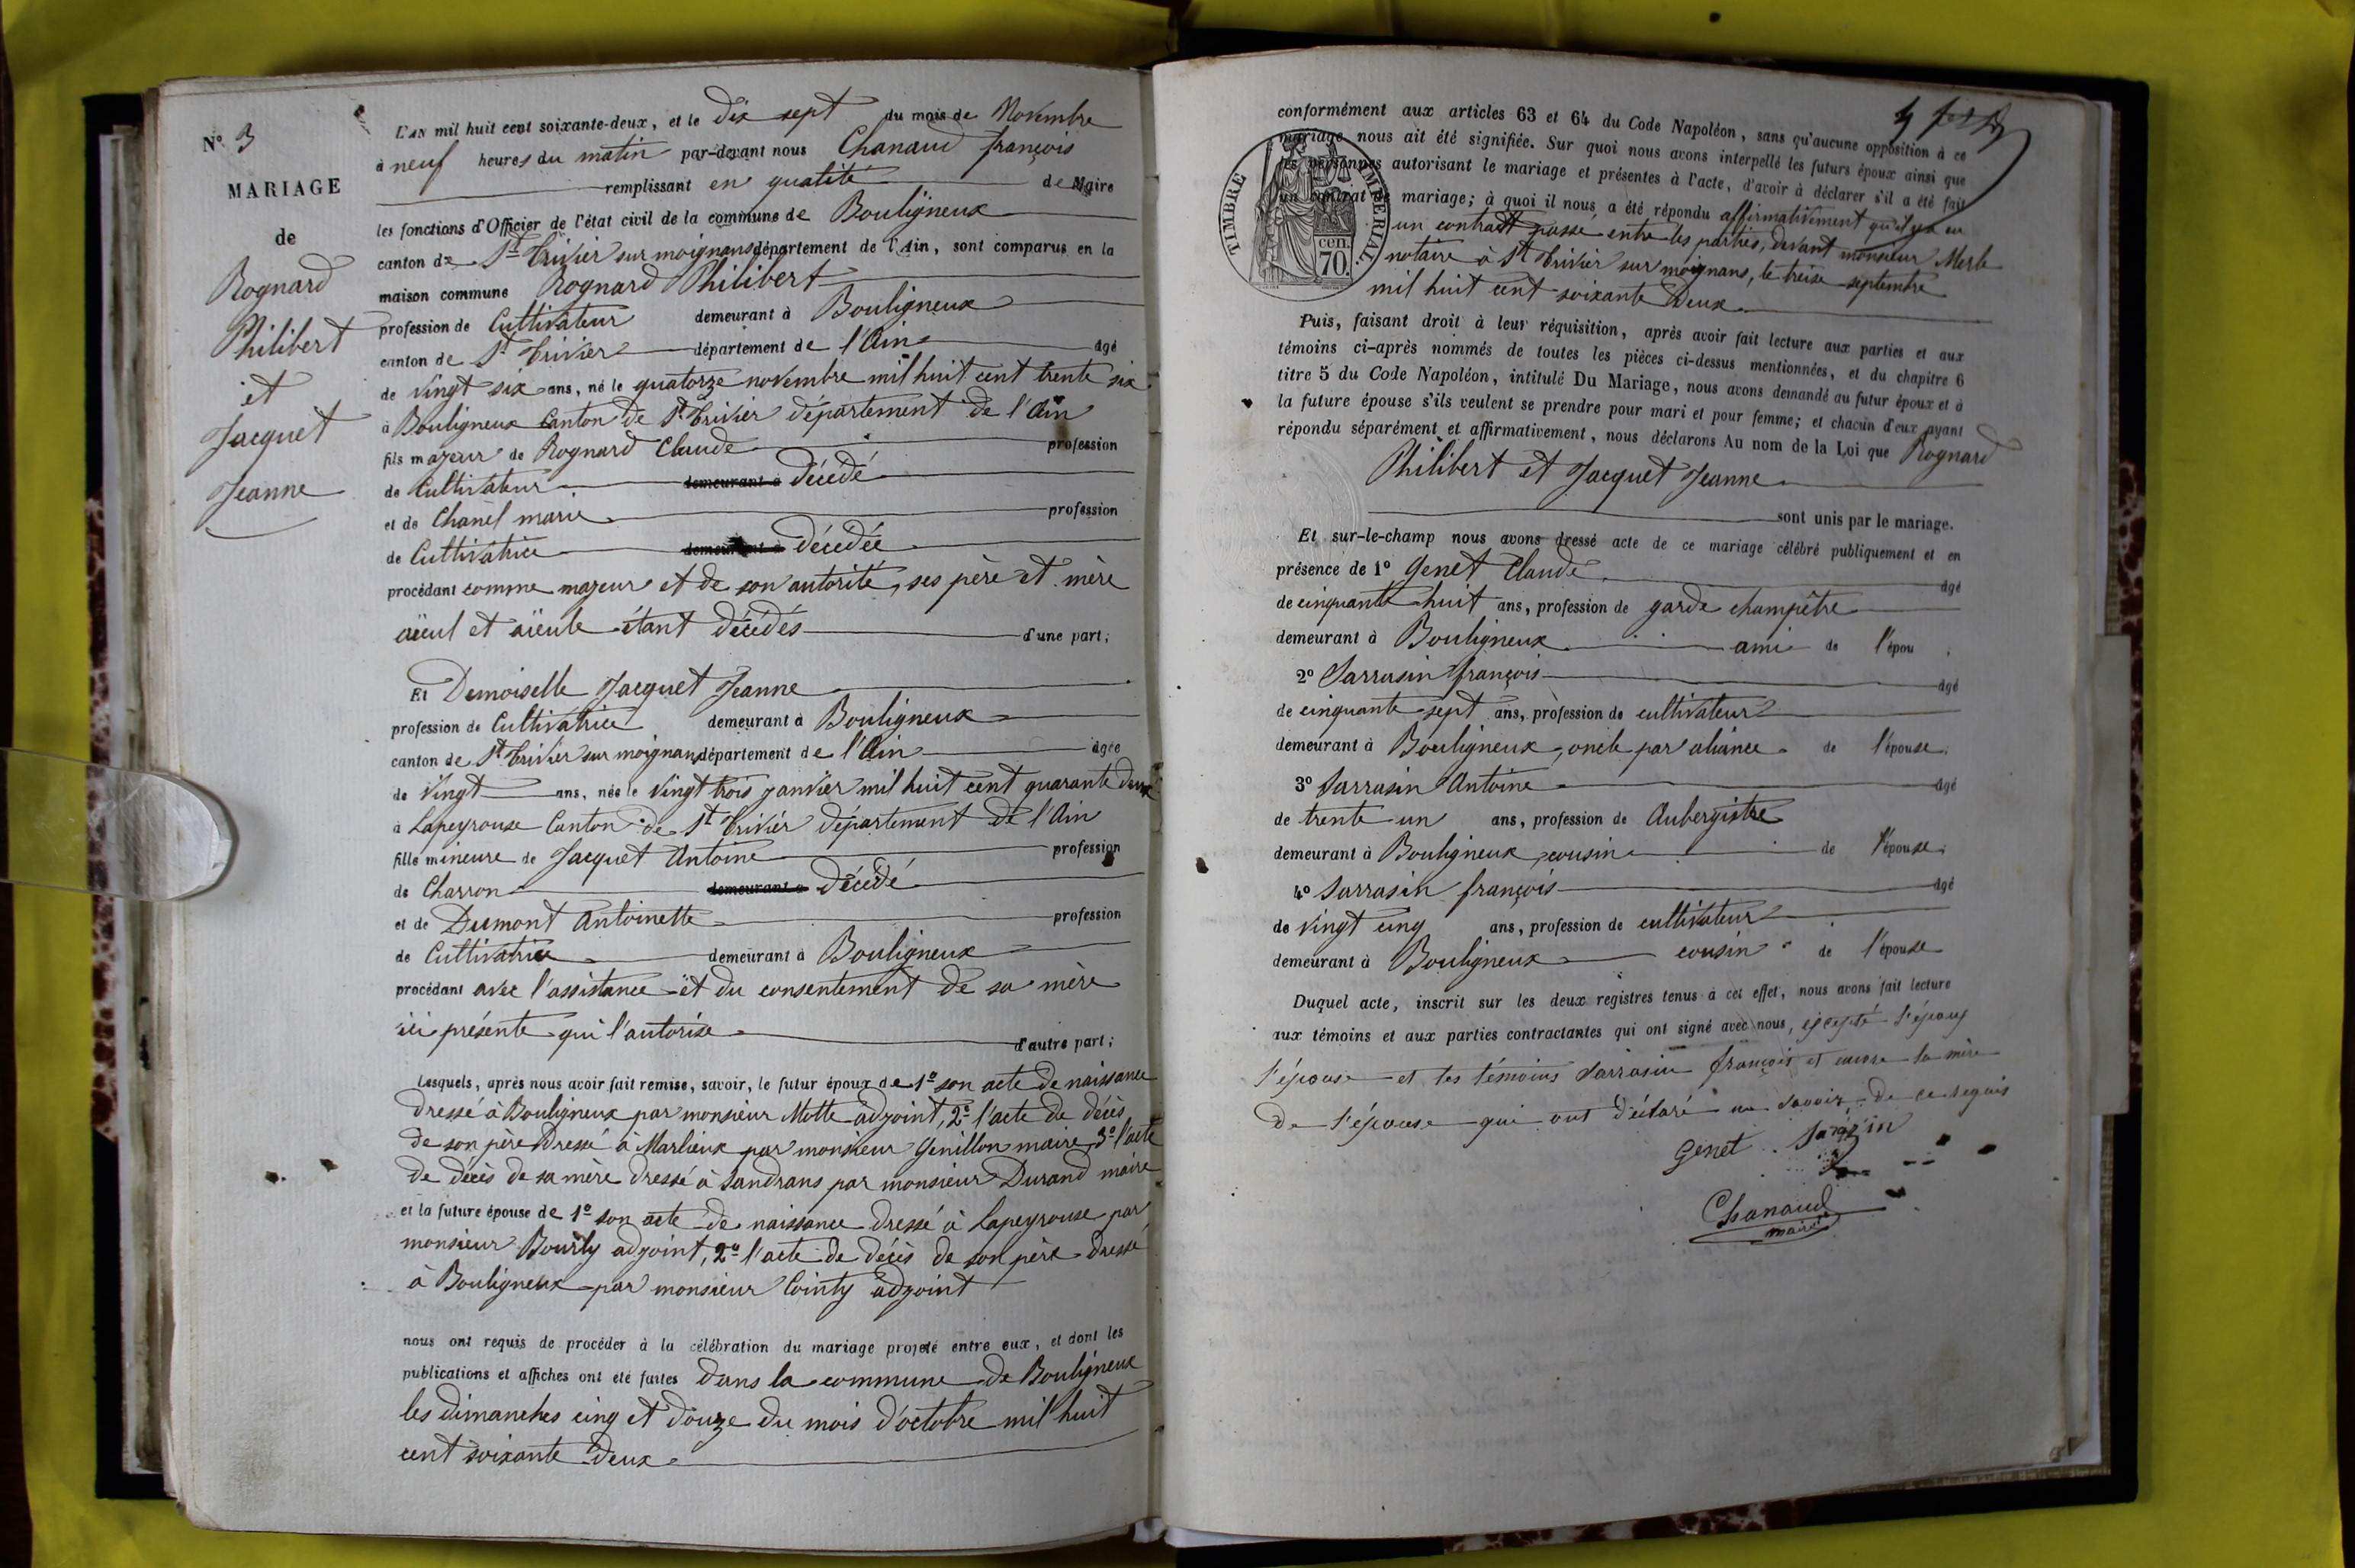 N° 3
MARIAGE
de
Rognard
Philibert
et
Jacquet
Jeanne
L'AN mil huit cent soixante-deux, et le dix sept du mois de Novembre
à neuf heures du matin par-devant nous Chanaud françois
remplissant en qualité de Maire
les fonctions d'Officier de l'état civil de la commune de Bouligneux
canton de St Trivier sur moignans département de l'Ain, sont comparus en la
maison commune Rognard Philibert
profession de Cultivateur demeurant à Bouligneux
canton de St Trivier département de l'Ain âgé
de vingt six ans, né le quatorze novembre mil huit cent trente six
à Bouligneux Canton de St Trivier département de l'Ain
fils majeur de Rognard Claude profession
de Cultivateur demeurant à décédé
et de Chanel marie profession
de Cultivatrice demeurant à décédée
procédant comme majeur et de son autorité, ses père et mère
aïeul et aïeule étant décédés d'une part;
Et Demoiselle Jacquet Jeanne
profession de Cultivatrice demeurant à Bouligneux
canton de St Trivier sur moignans département de l'Ain âgée
de vingt ans, née le vingt trois janvier mil huit cent quarante deux
à Lapeyrouse Canton de St Trivier département de l'Ain
fille mineure de Jacquet Antoine profession
de Charron demeurant à décédé
et de Dumont Antoinette profession
de Cultivatrice demeurant à Bouligneux
procédant avec l'assistance et du consentement de sa mère
ici présente qui l'autorise d'autre part;
Lesquels, après nous avoir fait remise, savoir, le futur époux de 1° son acte de naissance
dressé à Bouligneux par monsieur Motte adjoint, 2° l'acte de décès
de son père dressé à Marlieux par monsieur Genillon maire, 3° l'acte
de décès de sa mère dressé à Sandrans par monsieur Durand maire
et la future épouse de 1° son acte de naissance dressé à Lapeyrouse par
monsieur Bourly adjoint, 2° l'acte de décès de son père dressé
à Bouligneux par monsieur Cointy adjoint
nous ont requis de procéder à la célébration du mariage projeté entre eux, et dont les
publications et affiches ont été faites dans la commune de Bouligneux
les dimanches cinq et douze du mois d'octobre mil huit
cent soixante deux
conformément aux articles 63 et 64 du Code Napoléon, sans qu'aucune opposition à ce
mariage nous ait été signifiée. Sur quoi nous avons interpellé les futurs époux ainsi que
les personnes autorisant le mariage et présentes à l'acte, d'avoir à déclarer s'il a été fait
un contrat de mariage; à quoi il nous a été répondu affirmativement qu'il y a eu
un contract passé entre les parties, devant monsieur Merle
notaire à St Trivier sur moignans, le treise septembre
mil huit cent soixante deux
TIMBRE IMPÉRIAL
70 cen.
Puis, faisant droit à leur réquisition, après avoir fait lecture aux parties et aux
témoins ci-après nommés de toutes les pièces ci-dessus mentionnées, et du chapitre 6
titre 5 du Code Napoléon, intitulé Du Mariage, nous avons demandé au futur époux et à
la future épouse s'ils veulent se prendre pour mari et pour femme; et chacun d'eux ayant
répondu séparément et affirmativement, nous déclarons Au nom de la Loi que Rognard
Philibert et Jacquet Jeanne
sont unis par le mariage.
Et sur-le-champ nous avons dressé acte de ce mariage célébré publiquement et en
présence de 1° Genet Claude âgé
de cinquante huit ans, profession de garde champêtre
demeurant à Bouligneux ami de l'épou
2° Sarrasin françois âgé
de cinquante sept ans, profession de cultivateur
demeurant à Bouligneux, oncle par aliance de l'épouse;
3° Sarrasin Antoine âgé
de trente un ans, profession de Aubergistre
demeurant à Bouligneux, cousin de l'épouse;
4° Sarrasin françois âgé
de vingt cinq ans, profession de cultivateur
demeurant à Bouligneux cousin de l'épouse
Duquel acte, inscrit sur les deux registres tenus à cet effet, nous avons fait lecture
aux témoins et aux parties contractantes qui ont signé avec nous, excepté l'époux
l'épouse et les témoins Sarrasin françois et encore la mère
de l'épouse qui ont déclaré ne savoir de ce requis
Genet Sarasin
Chanaud
maire